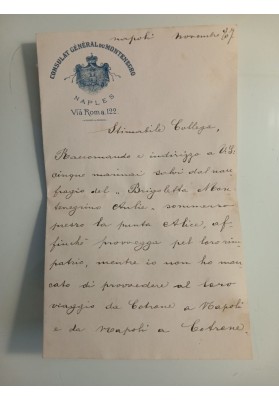 Napoli Novembre 27
CONSULAT GÉNÉRAL DU MONTENEGRO
NAPLES
Via Roma 122
Stimabile Collega,
Raccomando e indirizzo a
cinque marinai salvi dal nau-
fragio del "Brigoletto Mon
tenegrino sommerso
presso la punta Alice, af-
finchè provvegga pel loro rim-
patrio, mentre io non ho man
cato di provvedere al loro
viaggio da Cotrone a Napoli
e da Napoli a Cotrone.